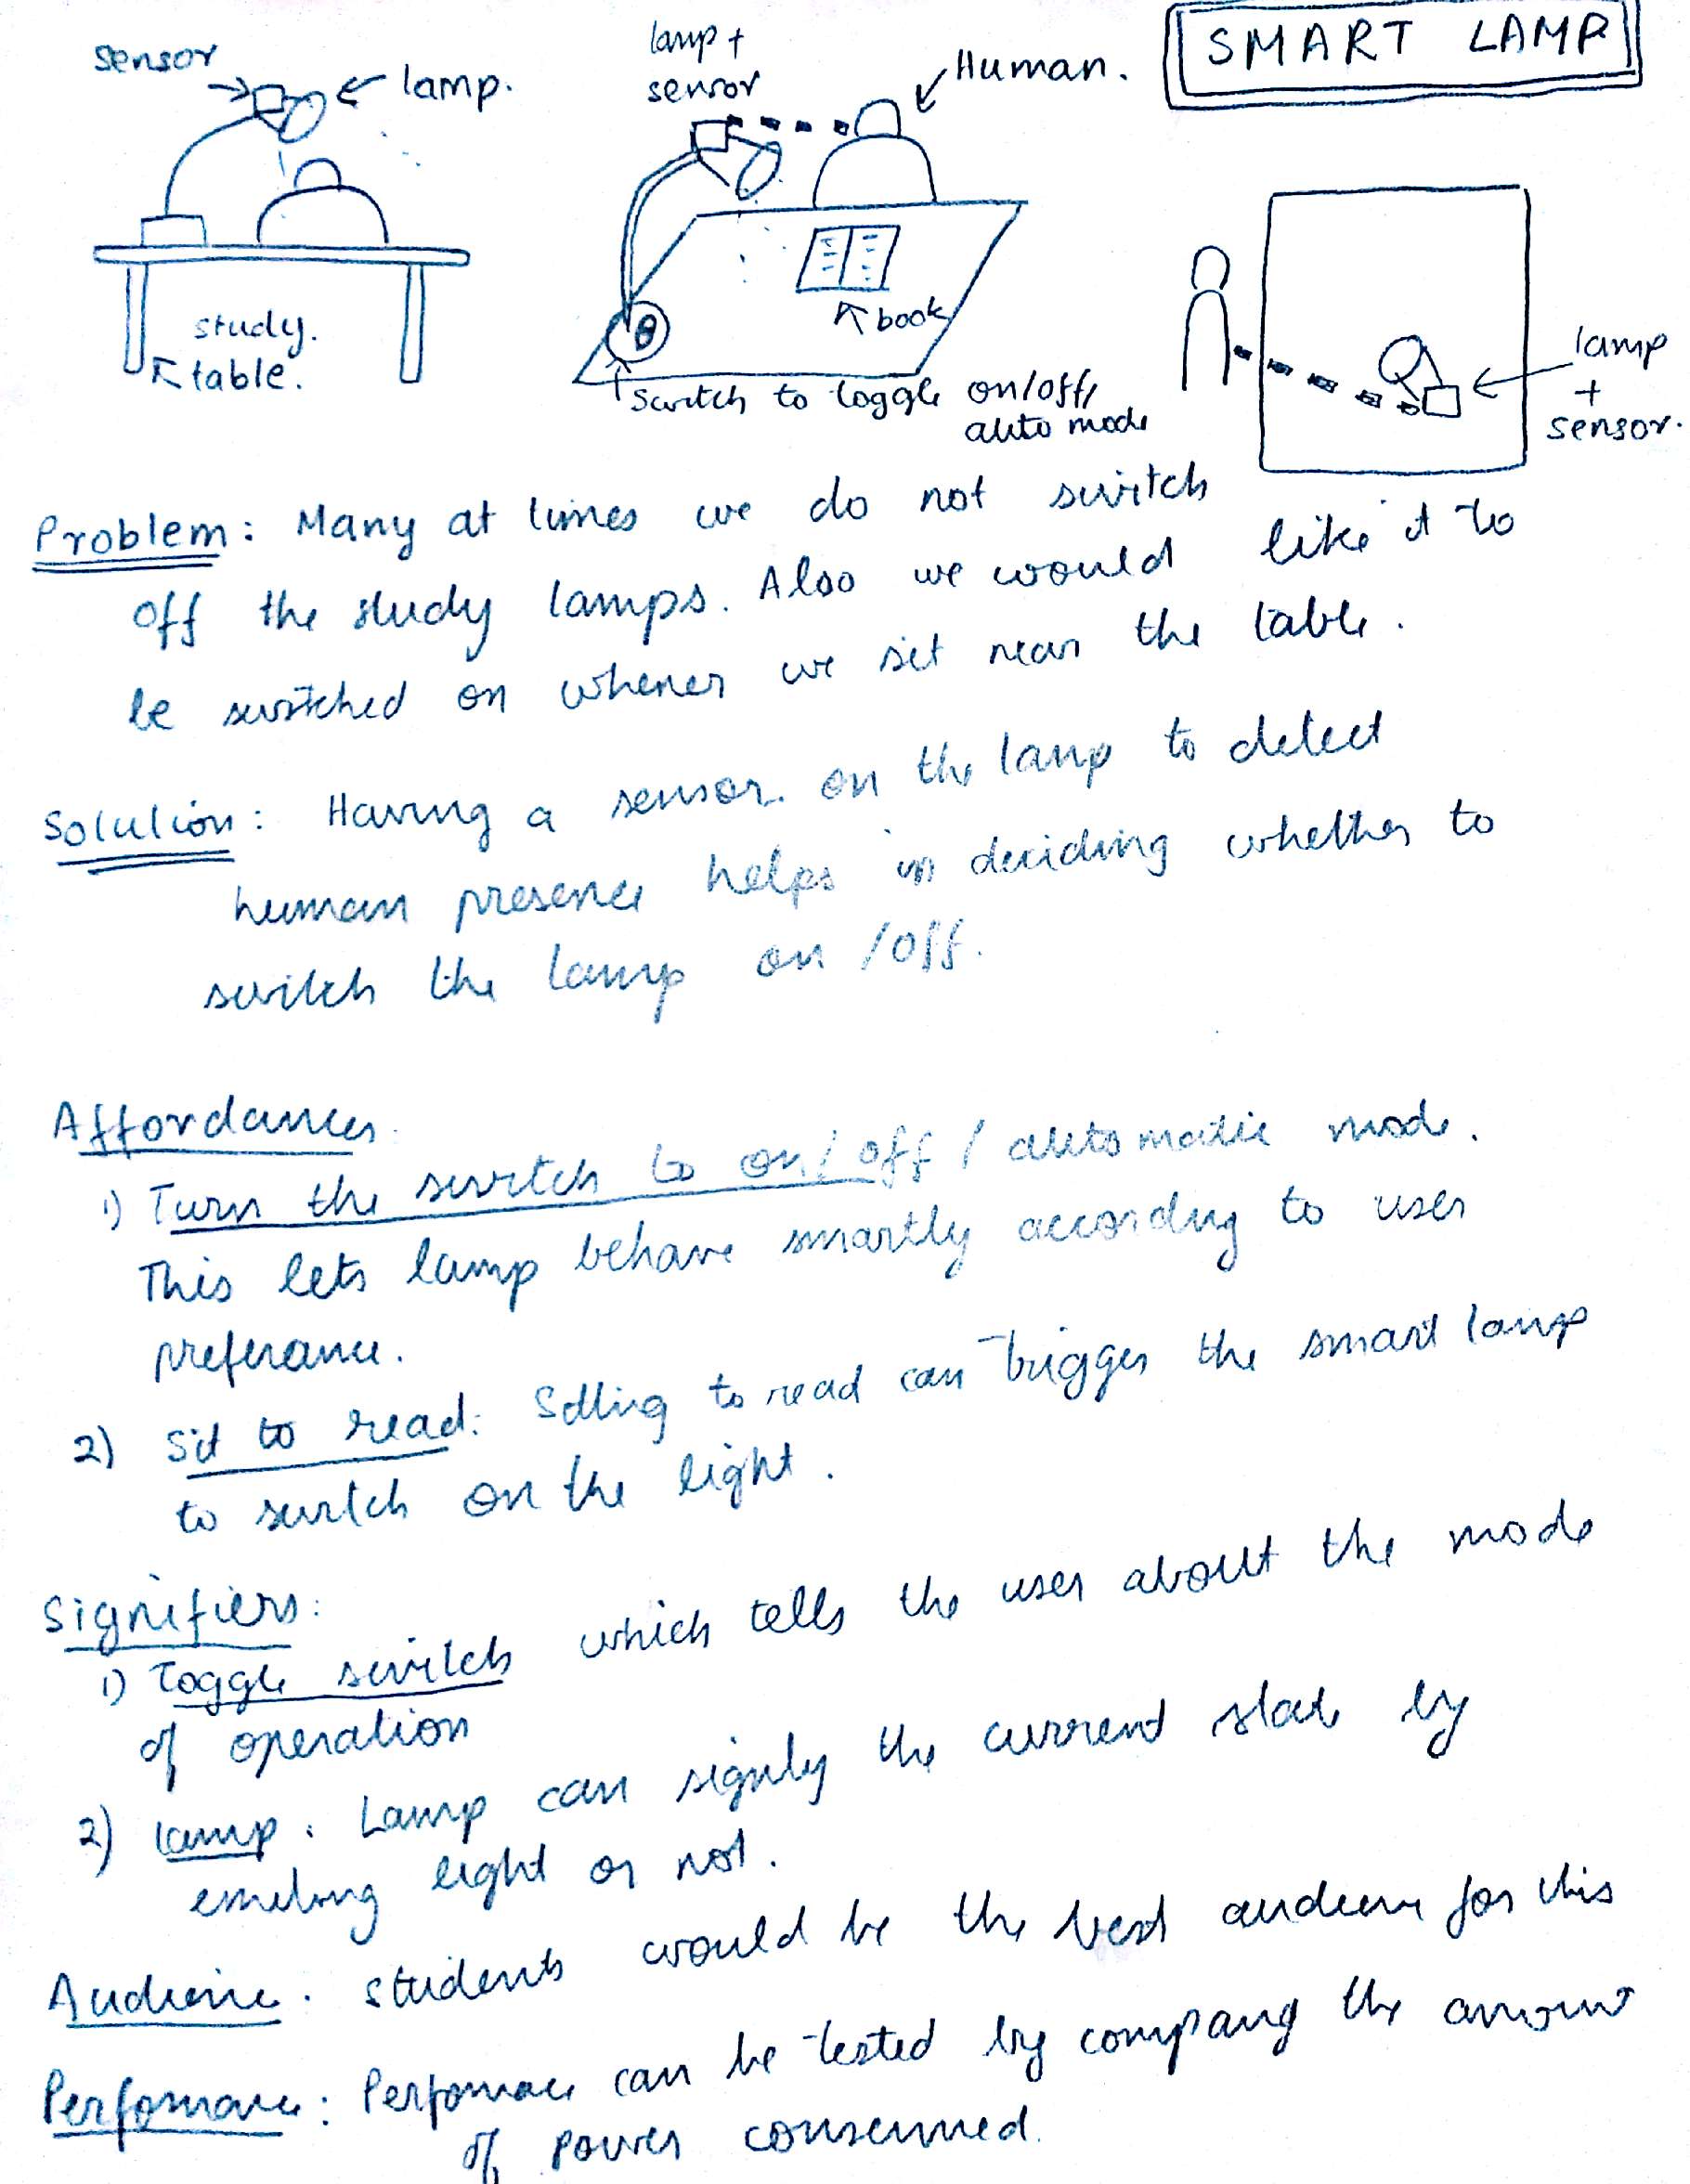 SMART LAMP
sensor
lamp.
study.
table.
lamp +
sensor
Human.
book
switch to toggle on/off/
auto mode
lamp
+
sensor.
Problem: Many at times we do not switch
off the study lamps. Also we would like it to
be switched on whener we sit near the table.
Solution: Having a sensor on the lamp to detect
human presence helps in deciding whether to
switch the lamp on /off.
Affordances
1) Turn the switch to on/off / automatic mode.
This lets lamp behave smartly according to user
preferance.
2) Sit to read: Sitting to read can trigger the smart lamp
to switch on the light.
Signifiers:
1) Toggle switch which tells the user about the mode
of operation
2) Lamp: Lamp can signify the current state by
emitting light or not.
Audience: students would be the best audience for this
Perfomance: Perfomace can be tested by comparing the amount
of power consumed.